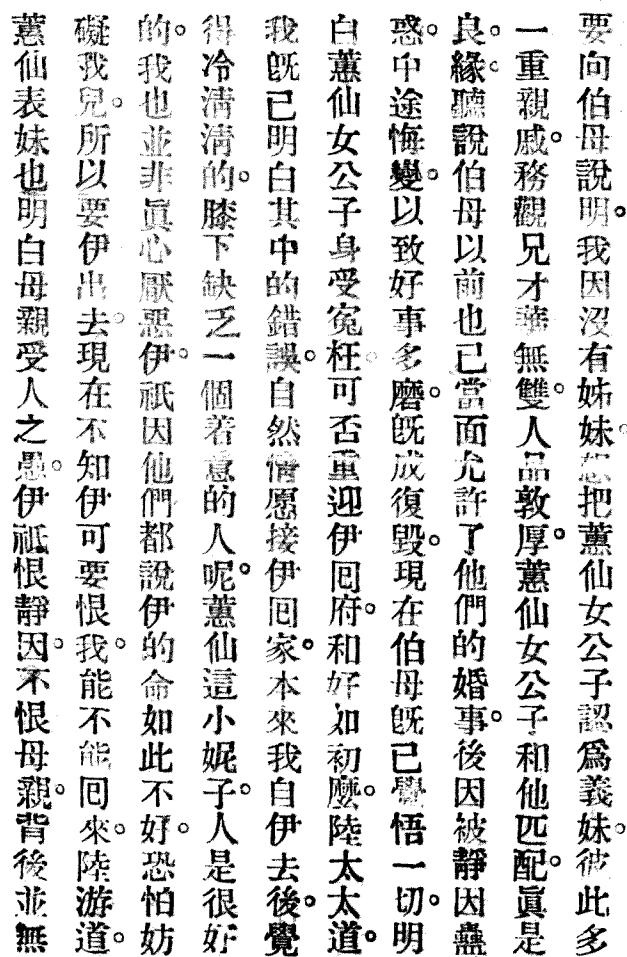 要向伯母說明。我因沒有姊妹。想把蕙仙女公子認爲義妹。彼此多
一重親戚。務觀兄才華無雙。人品敦厚。蕙仙女公子和他匹配。眞是
良。緣。聽說伯母以前也已當面允許了他們的婚事。後因被靜因蠱
惑。中途悔變。以致好事多磨。旣成復毀。現在伯母旣已覺悟一切。明
白蕙仙女公子身受寃枉。可否重迎伊囘府。和好如初麼。陸太太道。
我旣已明白其中的錯誤。自然情愿接伊囘家。本來我自伊去後。覺
得冷淸淸的。膝下缺乏一個着意的人呢。蕙仙這小妮子。人是很好
的。我也並非眞心厭惡伊。祇因他們都說伊的命如此不好。恐怕妨
礙我兒。所以要伊出去。現在不知伊可要恨我。能不能囘來。陸游道。
蕙仙表妹也明白母親受人之愚。伊祇恨靜因。不恨母親。背後並無